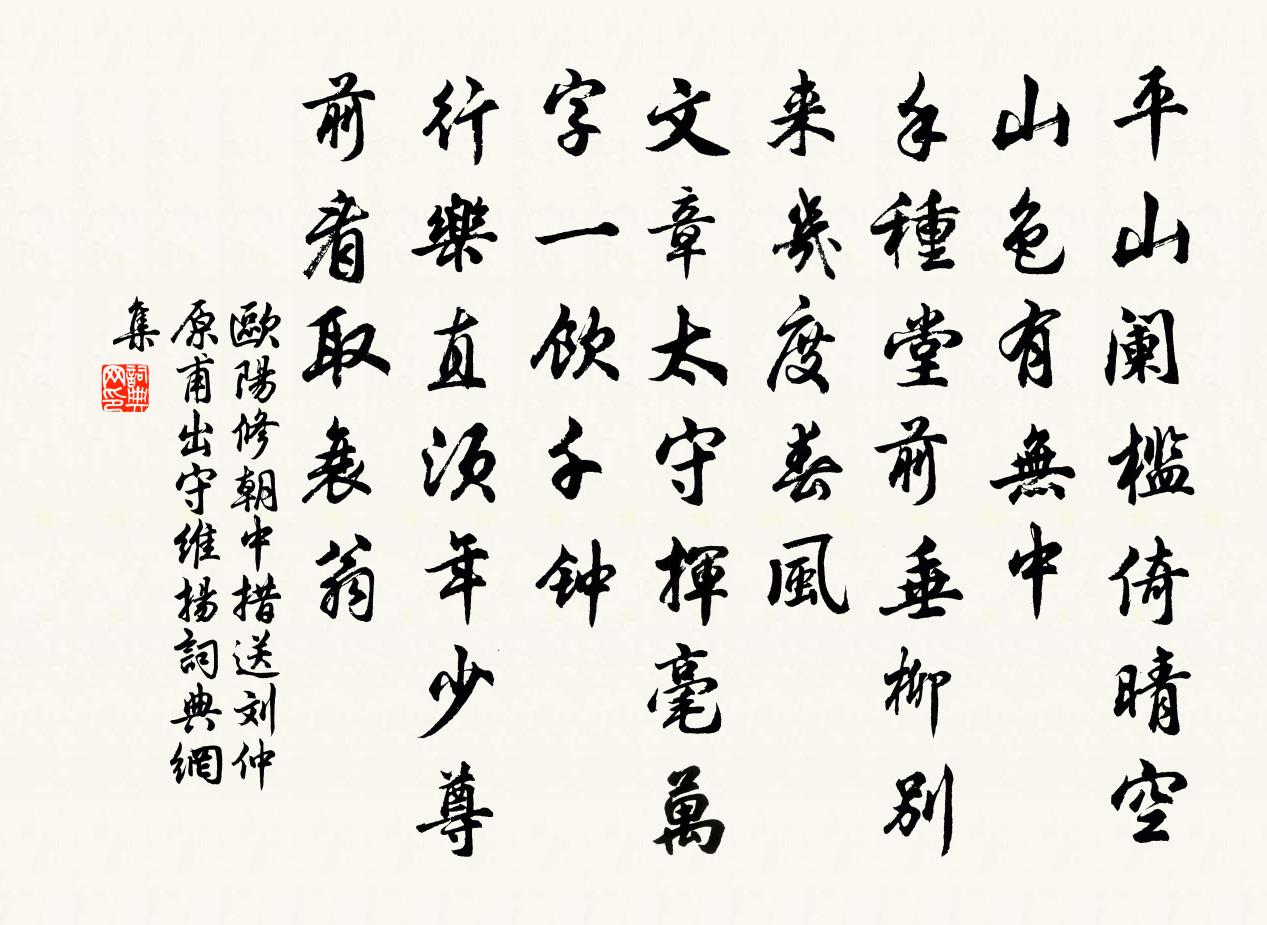 平山阑檻倚晴空
山色有無中
手種堂前垂柳别
来幾度春風
文章太守揮毫萬
字一飲千钟
行樂直須年少尊
前看取衰翁
歐陽修朝中措送刘仲
原甫出守維揚詞典網
集
詞典网印